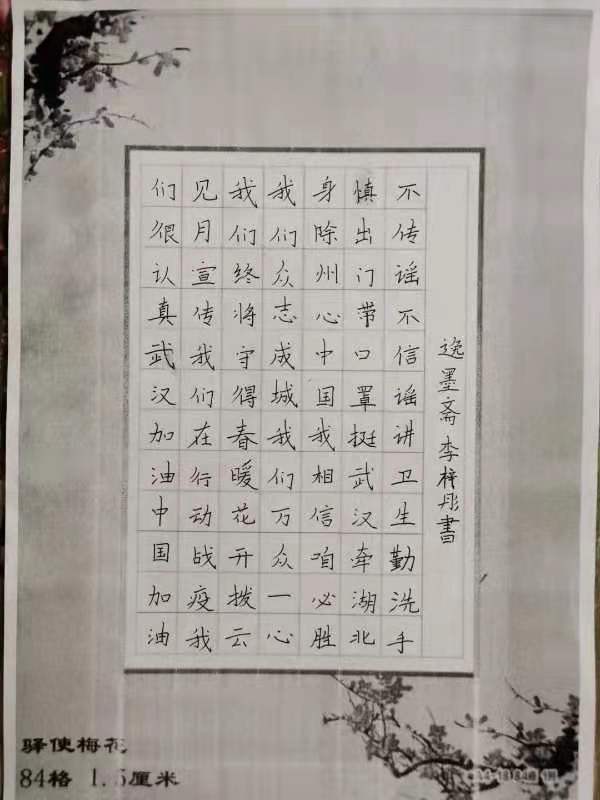 逸墨斋李梓彤書
不传谣不信谣讲卫生勤洗手
慎出门带口罩挺武汉牵湖北
身除州心中国我相信咱必胜
我们众志成城我们万众一心
我们终将守得春暖花开拨云
见月宣传我们在行动战疫我
们很认真武汉加油中国加油
驿使梅花
84格 1.5厘米